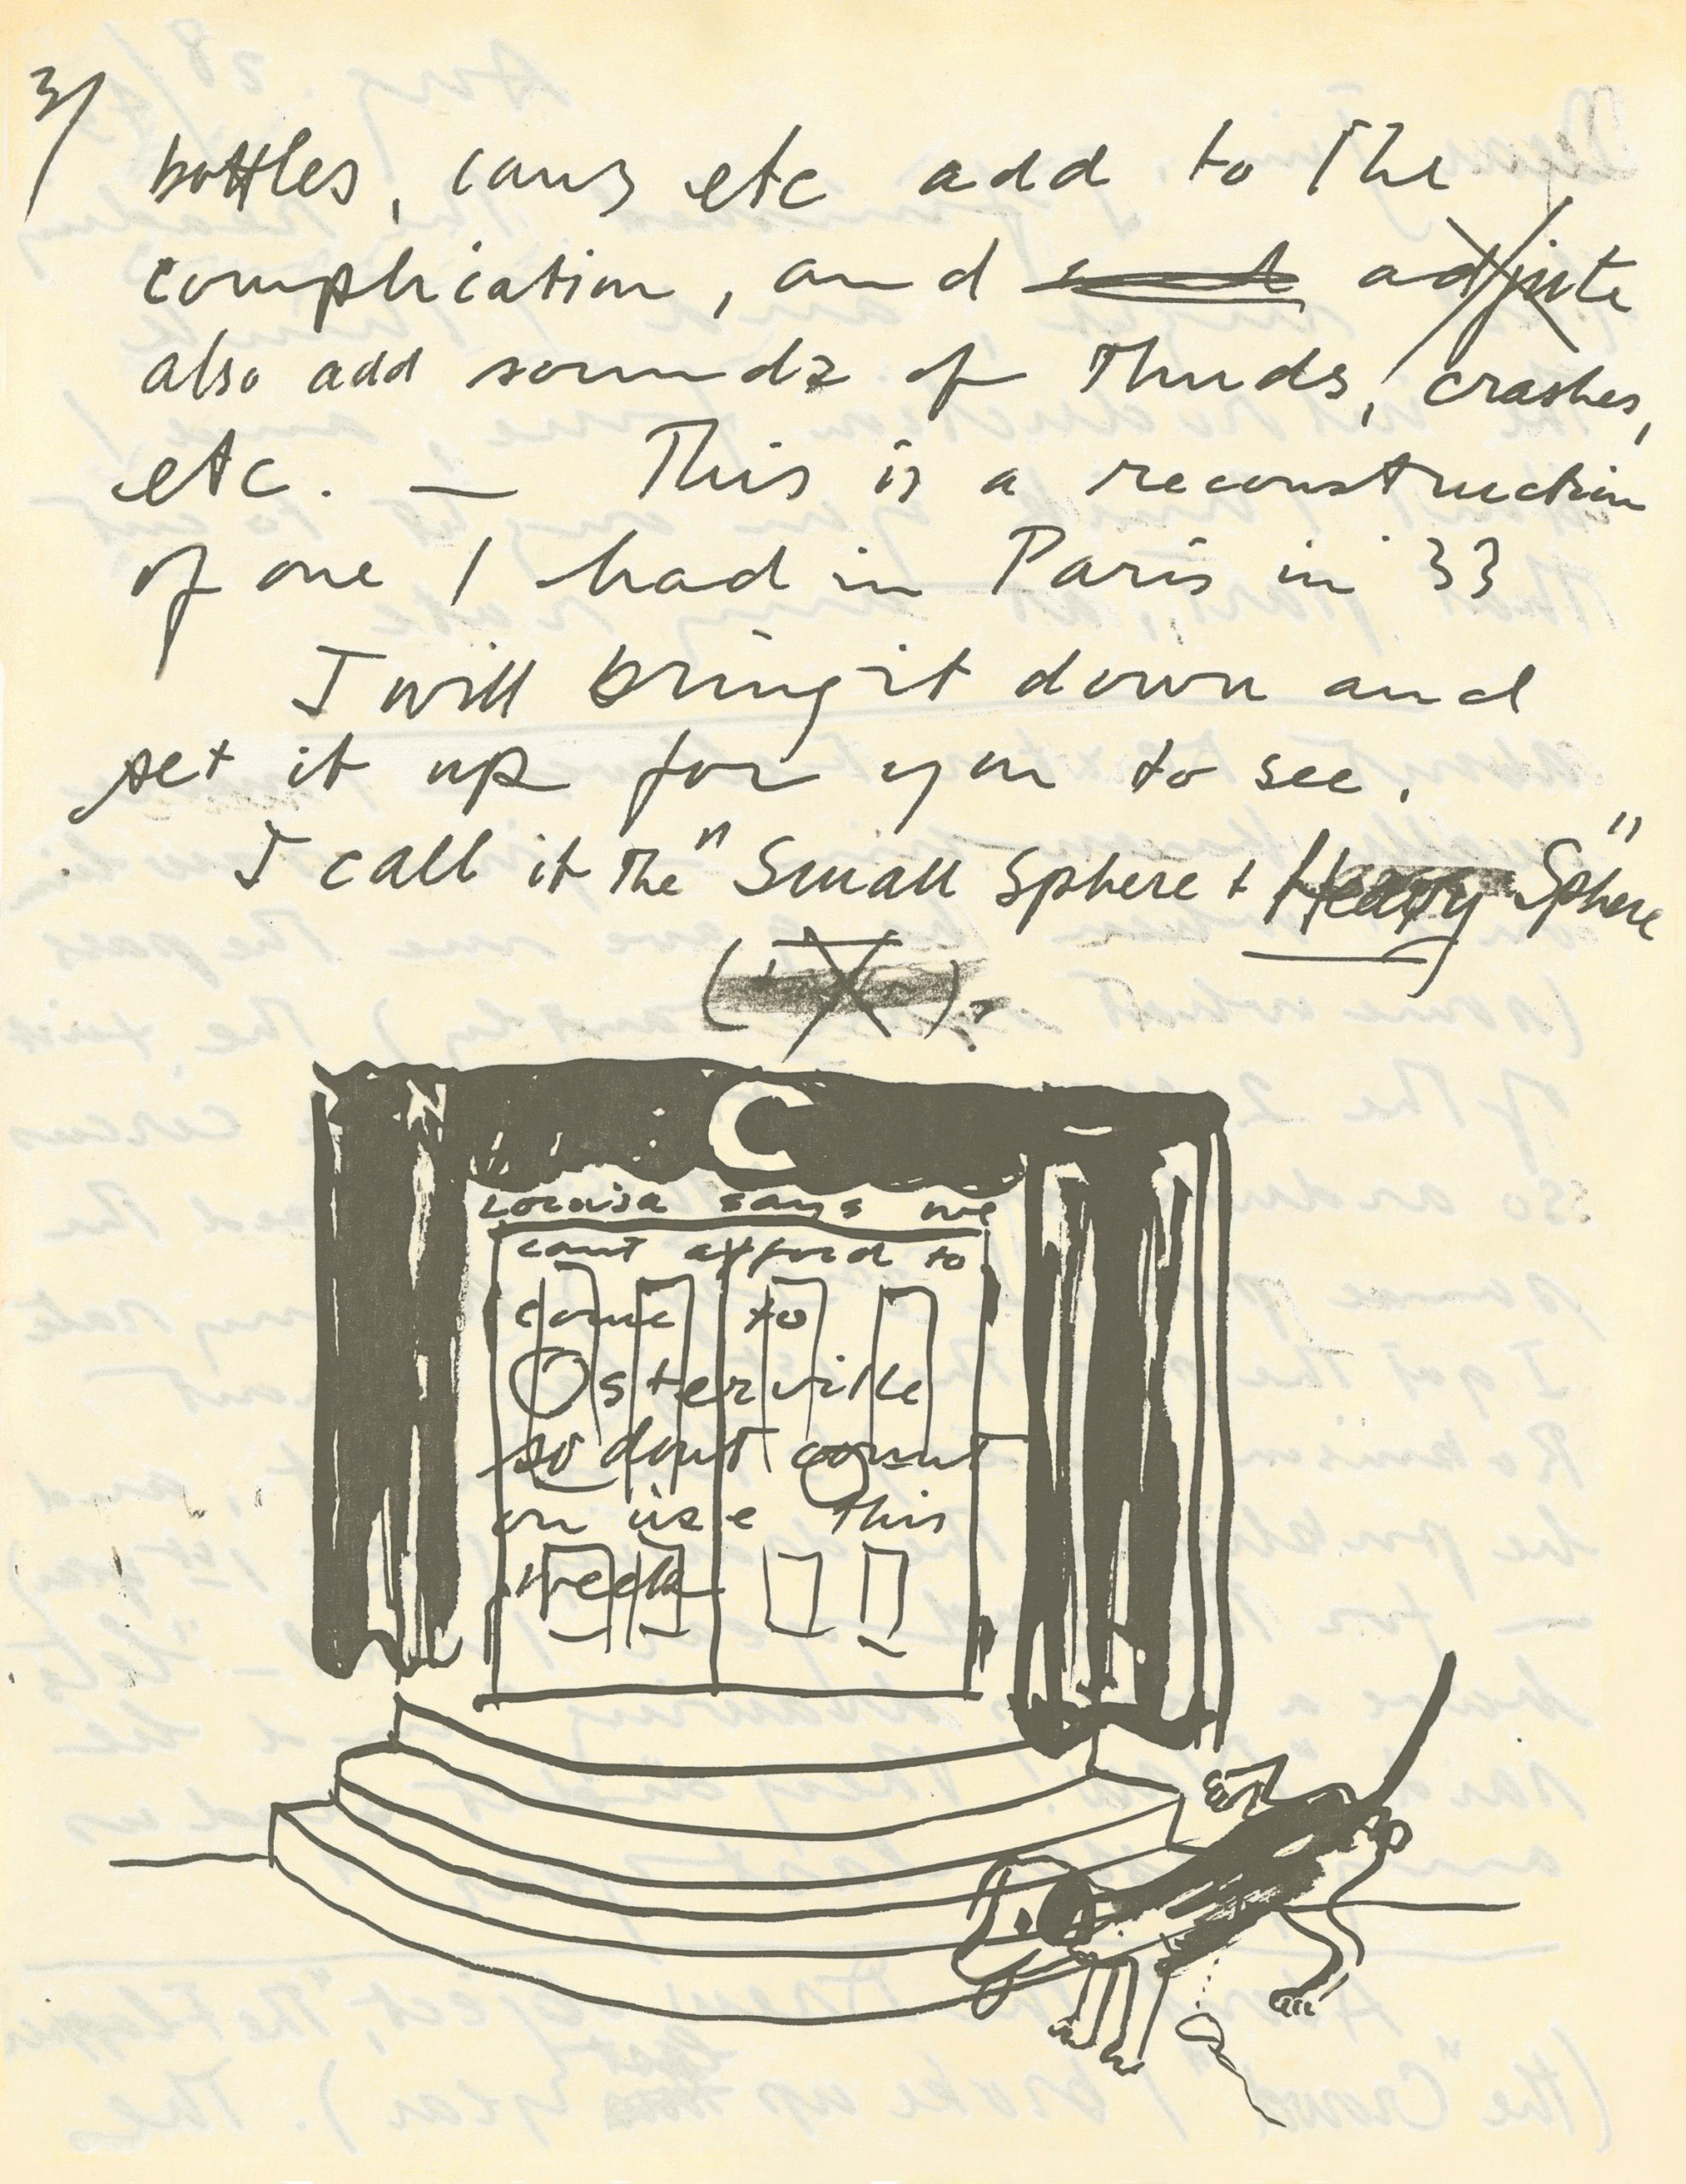 3/
bottles, cans etc add to the
complication, and adjute
also add soundz of Thuds, crashes,
etc. — This is a reconstruction
of one I had in Paris in 33
I will bring it down and
set it up for you to see.
I call it the "Small Sphere + Heavy Sphere"
C
Louisa says we
cant afford to
come to
Osterville
so dont count
on use this
week